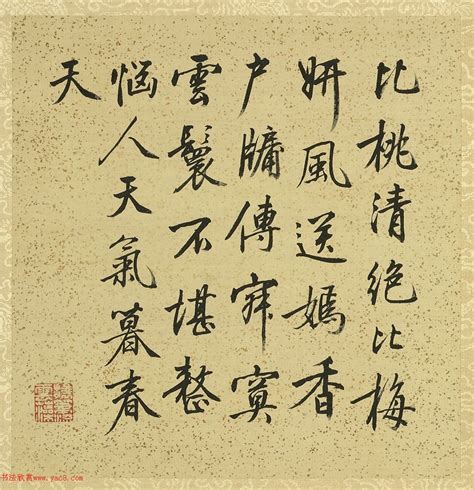 比桃清絶比梅
妍風送嫣香
户牖傳寂寞
雲鬟不堪整
惱人天氣暮春
天
书法欣赏www.yac8.com